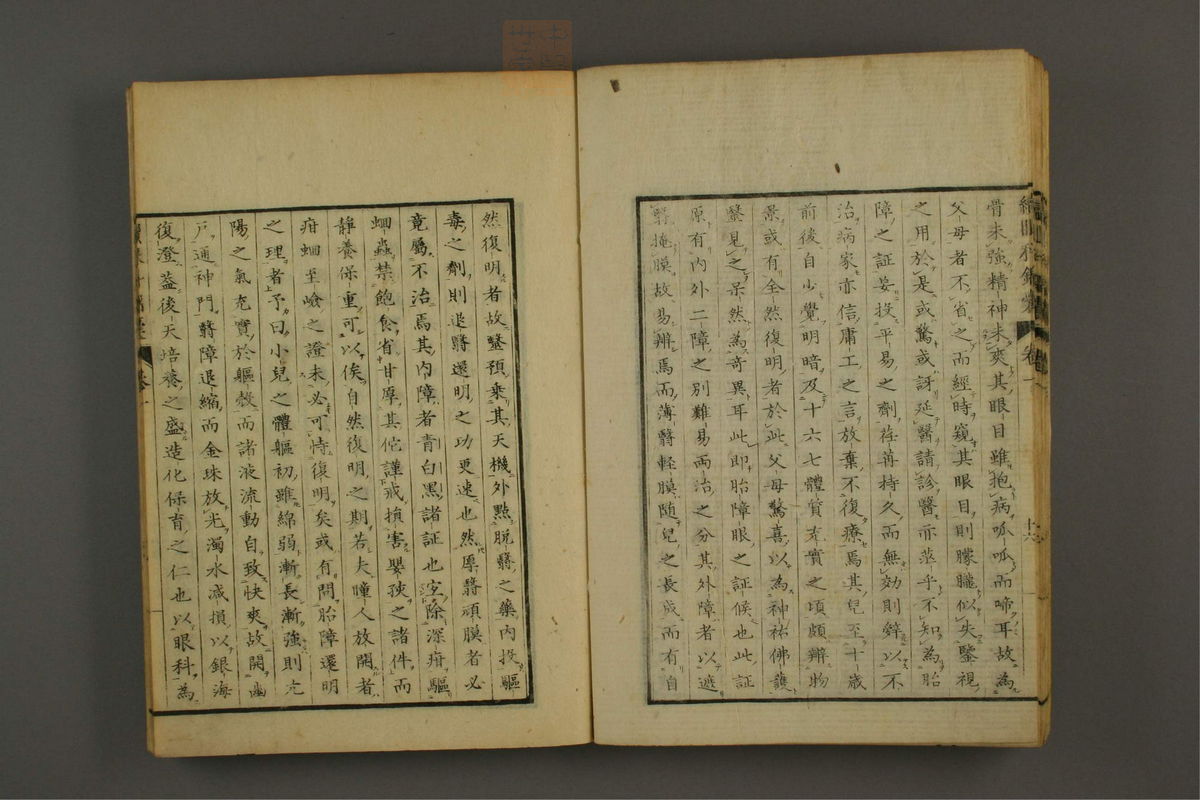 骨未強精神未爽其眼目雖抱病呱呱而啼耳故為
父母者不省之而經時窺其眼目則朦朧似失鑒視
之用於是或驚或訝延醫請診醫亦茫乎不知為胎
障之証妄投平易之劑荏苒持久而無効則辭以不
治病家亦信庸工之言放棄不復療焉其兒至十歲
前後自少覺明暗及十六七體質充實之頃頗辨物
景或有全然復明者於此父母驚喜以為神祐佛護
醫見之呆然為奇異耳此即胎障眼之証候也此証
原有內外二障之別難易兩治之分其外障者以遮
翳掩膜故易辨焉而薄翳輕膜隨兒之長歲而有自
然復明者故醫預乘其天機外點脫翳之藥內投驅
毒之劑則退翳還明之功更速也然厚翳頑膜者必
竟屬不治焉其內障者青白黑諸証也宜除深疳驅
蛔蟲禁飽食省甘厚其佗謹戒損害嬰孩之諸件而
靜養保重可以俟自然復明之期若夫瞳人放開者
疳蛔至嶮之證未必可恃復明矣或有問胎障還明
之理者予曰小兒之體軀初雖綿弱漸長漸強則元
陽之氣充實於軀殼而諸液流動自致快爽故開幽
戶通神門翳障退縮而金珠放光濁水減損以銀海
復澄蓋後天培養之盛造化保育之仁也以眼科為